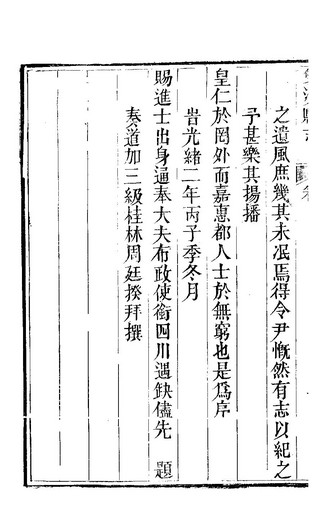 之遺風庶幾其未泯焉得令尹慨然有志以紀之
予甚樂其揚播
皇仁於罔外而嘉惠都人士於無窮也是為序
旹光緒二年丙子季冬月
賜進士出身通奉大夫布政使銜四川遇缺儘先 題
奏道加三級桂林周廷揆拜撰